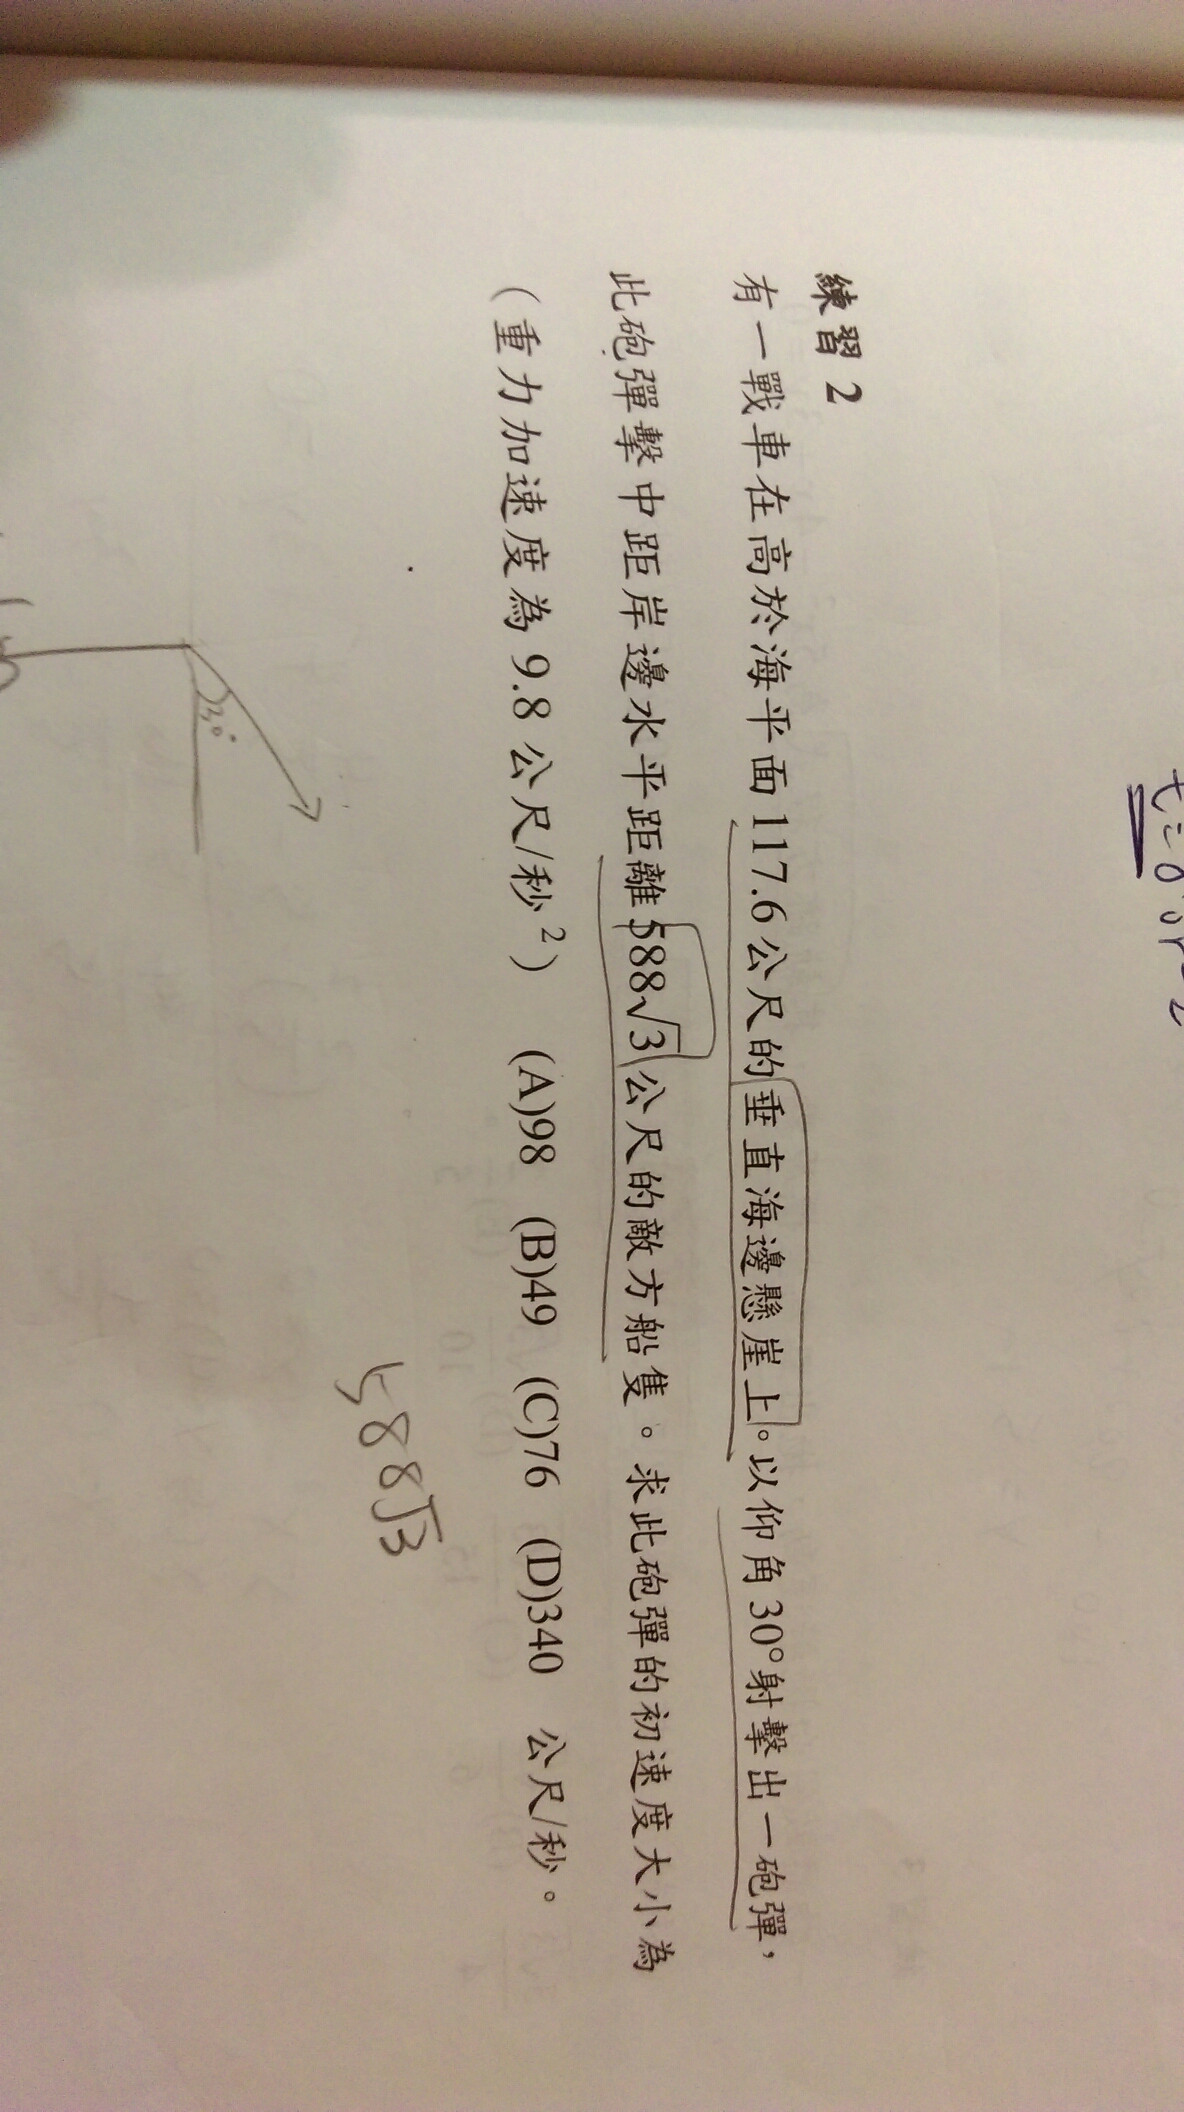 練習 2
有一戰車在高於海平面117.6公尺的垂直海邊懸崖上。以仰角30°射擊出一砲彈，
此砲彈擊中距岸邊水平距離588√3公尺的敵方船隻。求此砲彈的初速度大小為
(重力加速度為9.8公尺/秒²) (A)98 (B)49 (C)76 (D)340 公尺/秒。
30°
588√3